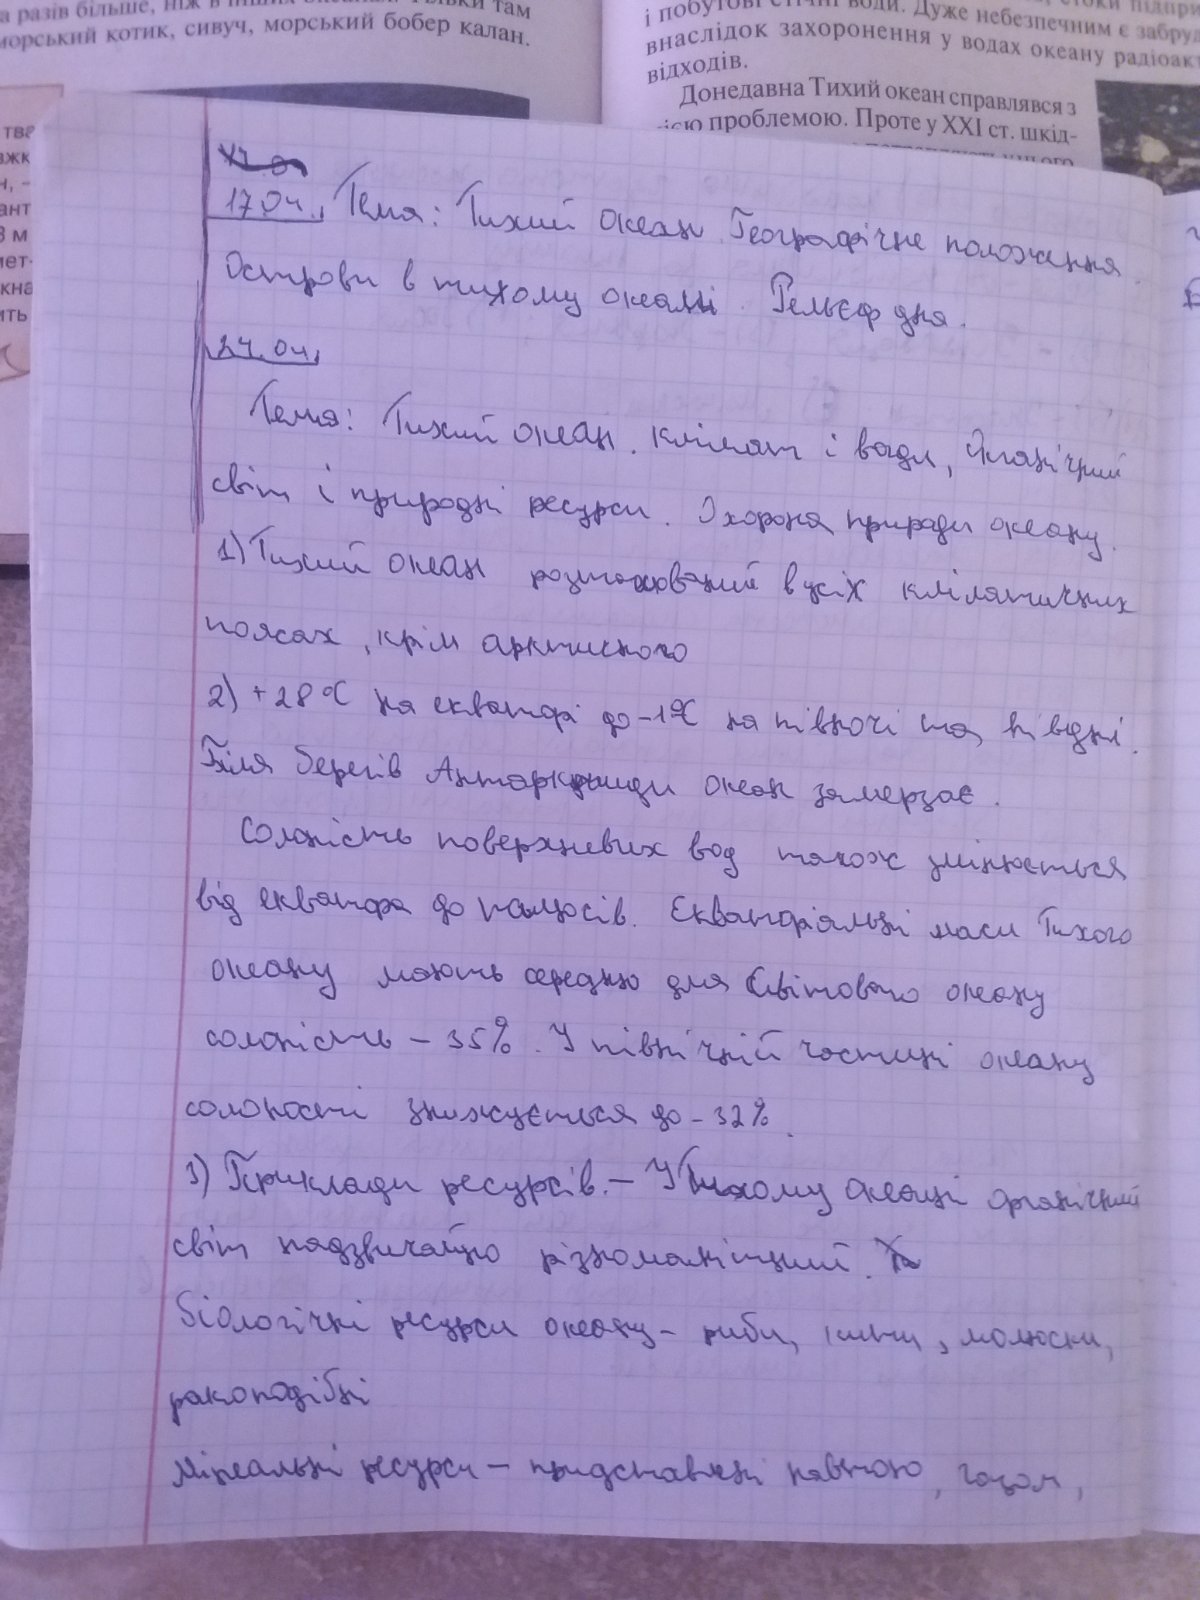 а разів більше, ніж в інших океанах. Тільки там
морський котик, сивуч, морський бобер калан.
і побутові стічні води. Дуже небезпечним є забруд
внаслідок захоронення у водах океану радіоакт
відходів.
Донедавна Тихий океан справлявся з
цією проблемою. Проте у XXI ст. шкід-
17.04. Тема: Тихий океан. Географічне положення.
Острови в тихому океані. Рельєф дна.
24.04.
Тема: Тихий океан. Клімат і води, Органічний
світ і природні ресурси. Охорона природи океану.
1) Тихий океан розташований в усіх кліматичних
поясах, крім арктисного
2) +28°C на екваторі до -1°C на півночі та півдні.
Біля берегів Антарктиди океан замерзає.
Солоність поверхневих вод також змінюється
від екватора до полюсів. Екваторіальні маси Тихого
океану мають середню для Світового океану
солоність - 35%. У північній частині океану
солоності знижується до - 32%.
3) Приклади ресурсів. - У Тихому океані органічний
світ надзвичайно різноманітний.
Біологічні ресурси океану - риби, кити, молюски,
ракоподібні
Мінеальні ресурси - придставлені нафтою, газом,